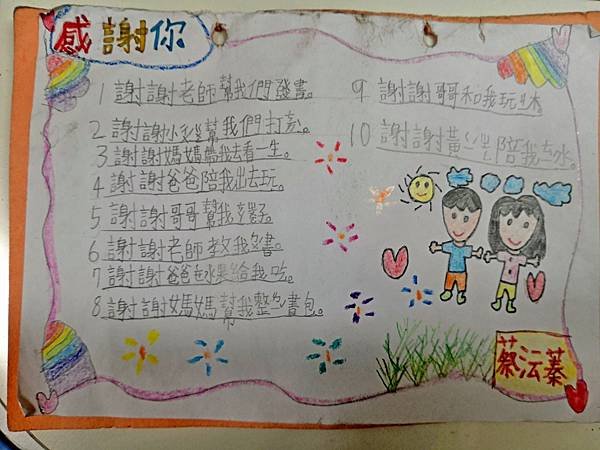 感謝你
1 謝謝老師幫我們發書。
2 謝謝小 幫我們打
3 謝謝媽媽帶我去看一生。
4 謝謝爸爸陪我出去玩。
5 謝謝哥哥幫我
6 謝謝老師教我 書。
7 謝謝爸爸 水果給我吃。
8 謝謝媽媽幫我整 書包。
9 謝謝哥哥和我玩
10 謝謝黃 陪我 水。
蔡沄蓁